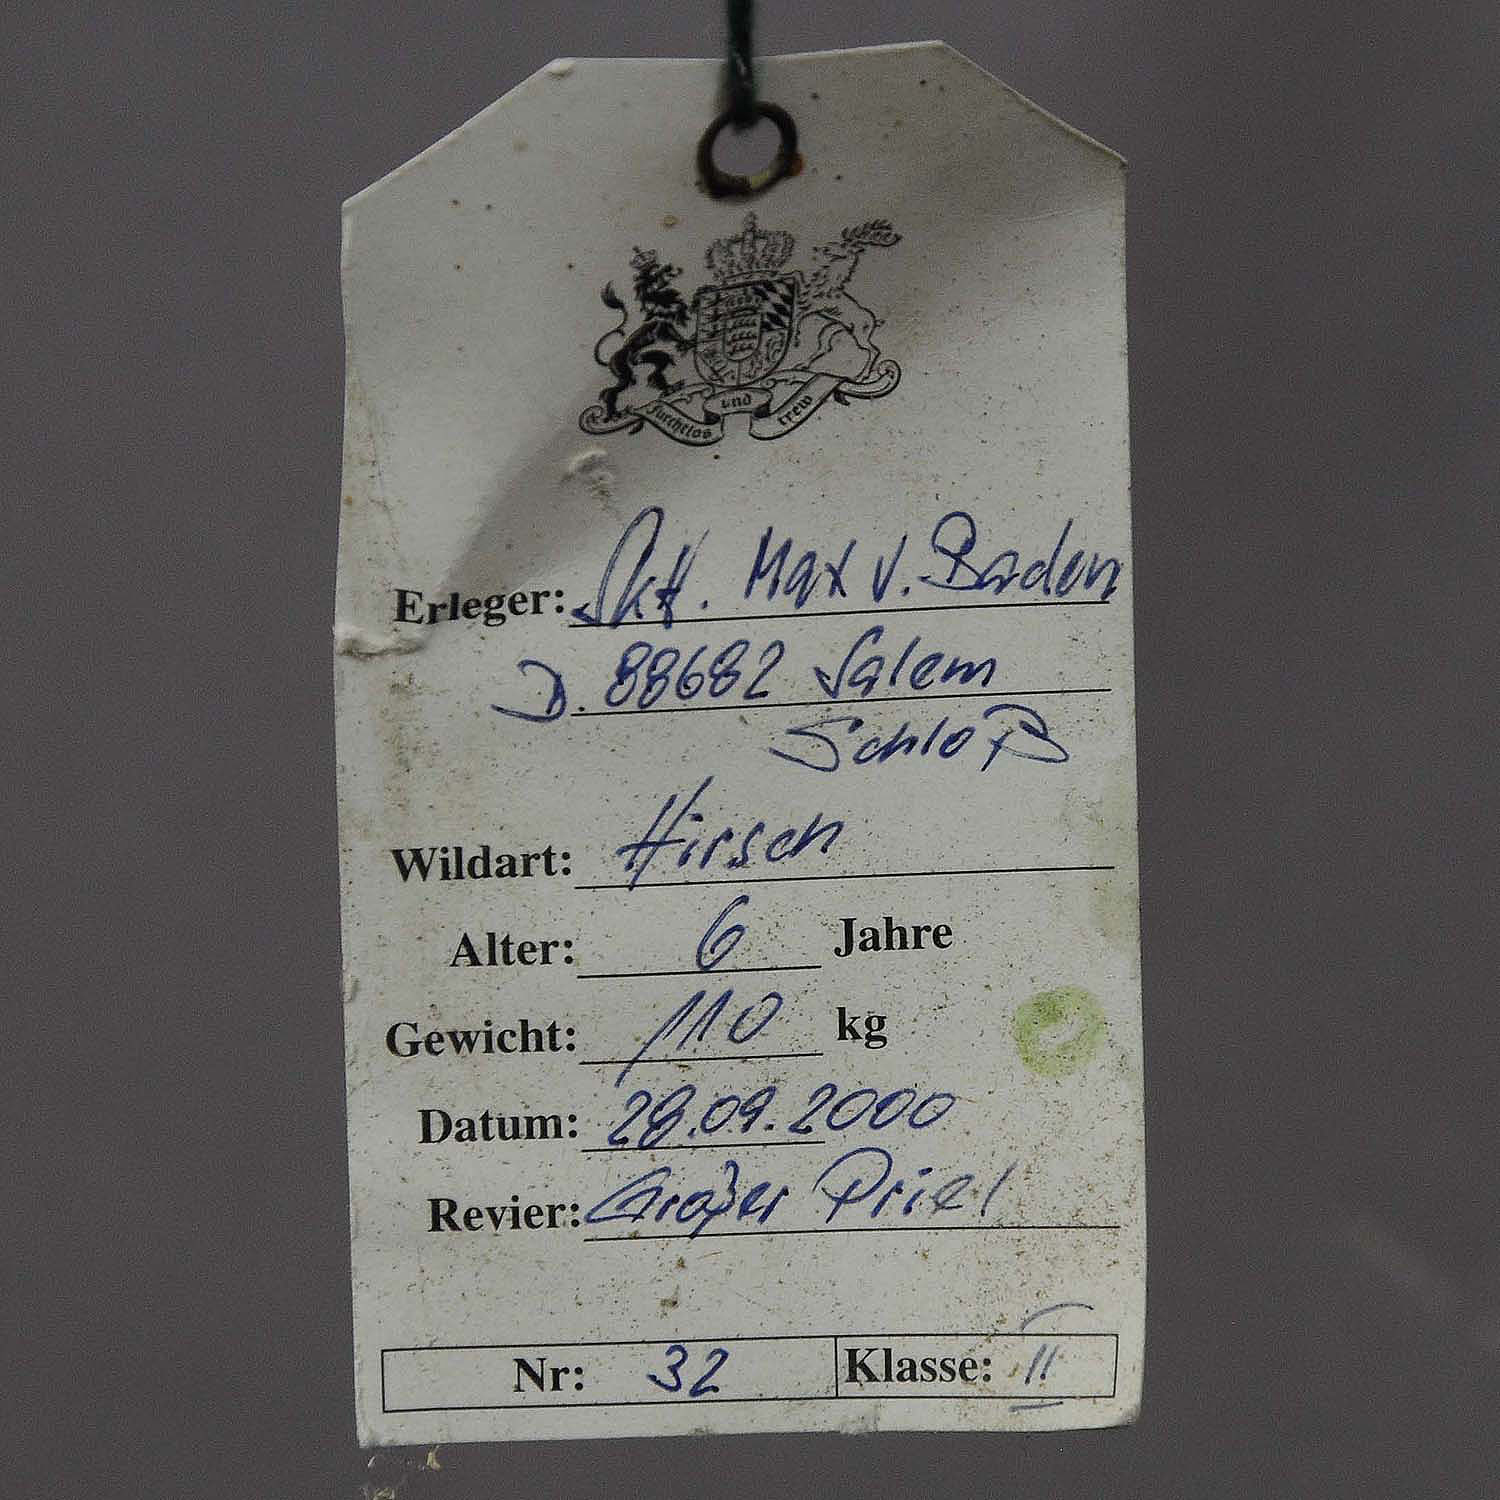 furchtlos und trew
Erleger: SKH. Max v. Baden
D. 88682 Salem
Schloß
Wildart: Hirsch
Alter: 6 Jahre
Gewicht: 110 kg
Datum: 28.09.2000
Revier: Großer Priel
Nr: 32 Klasse: II